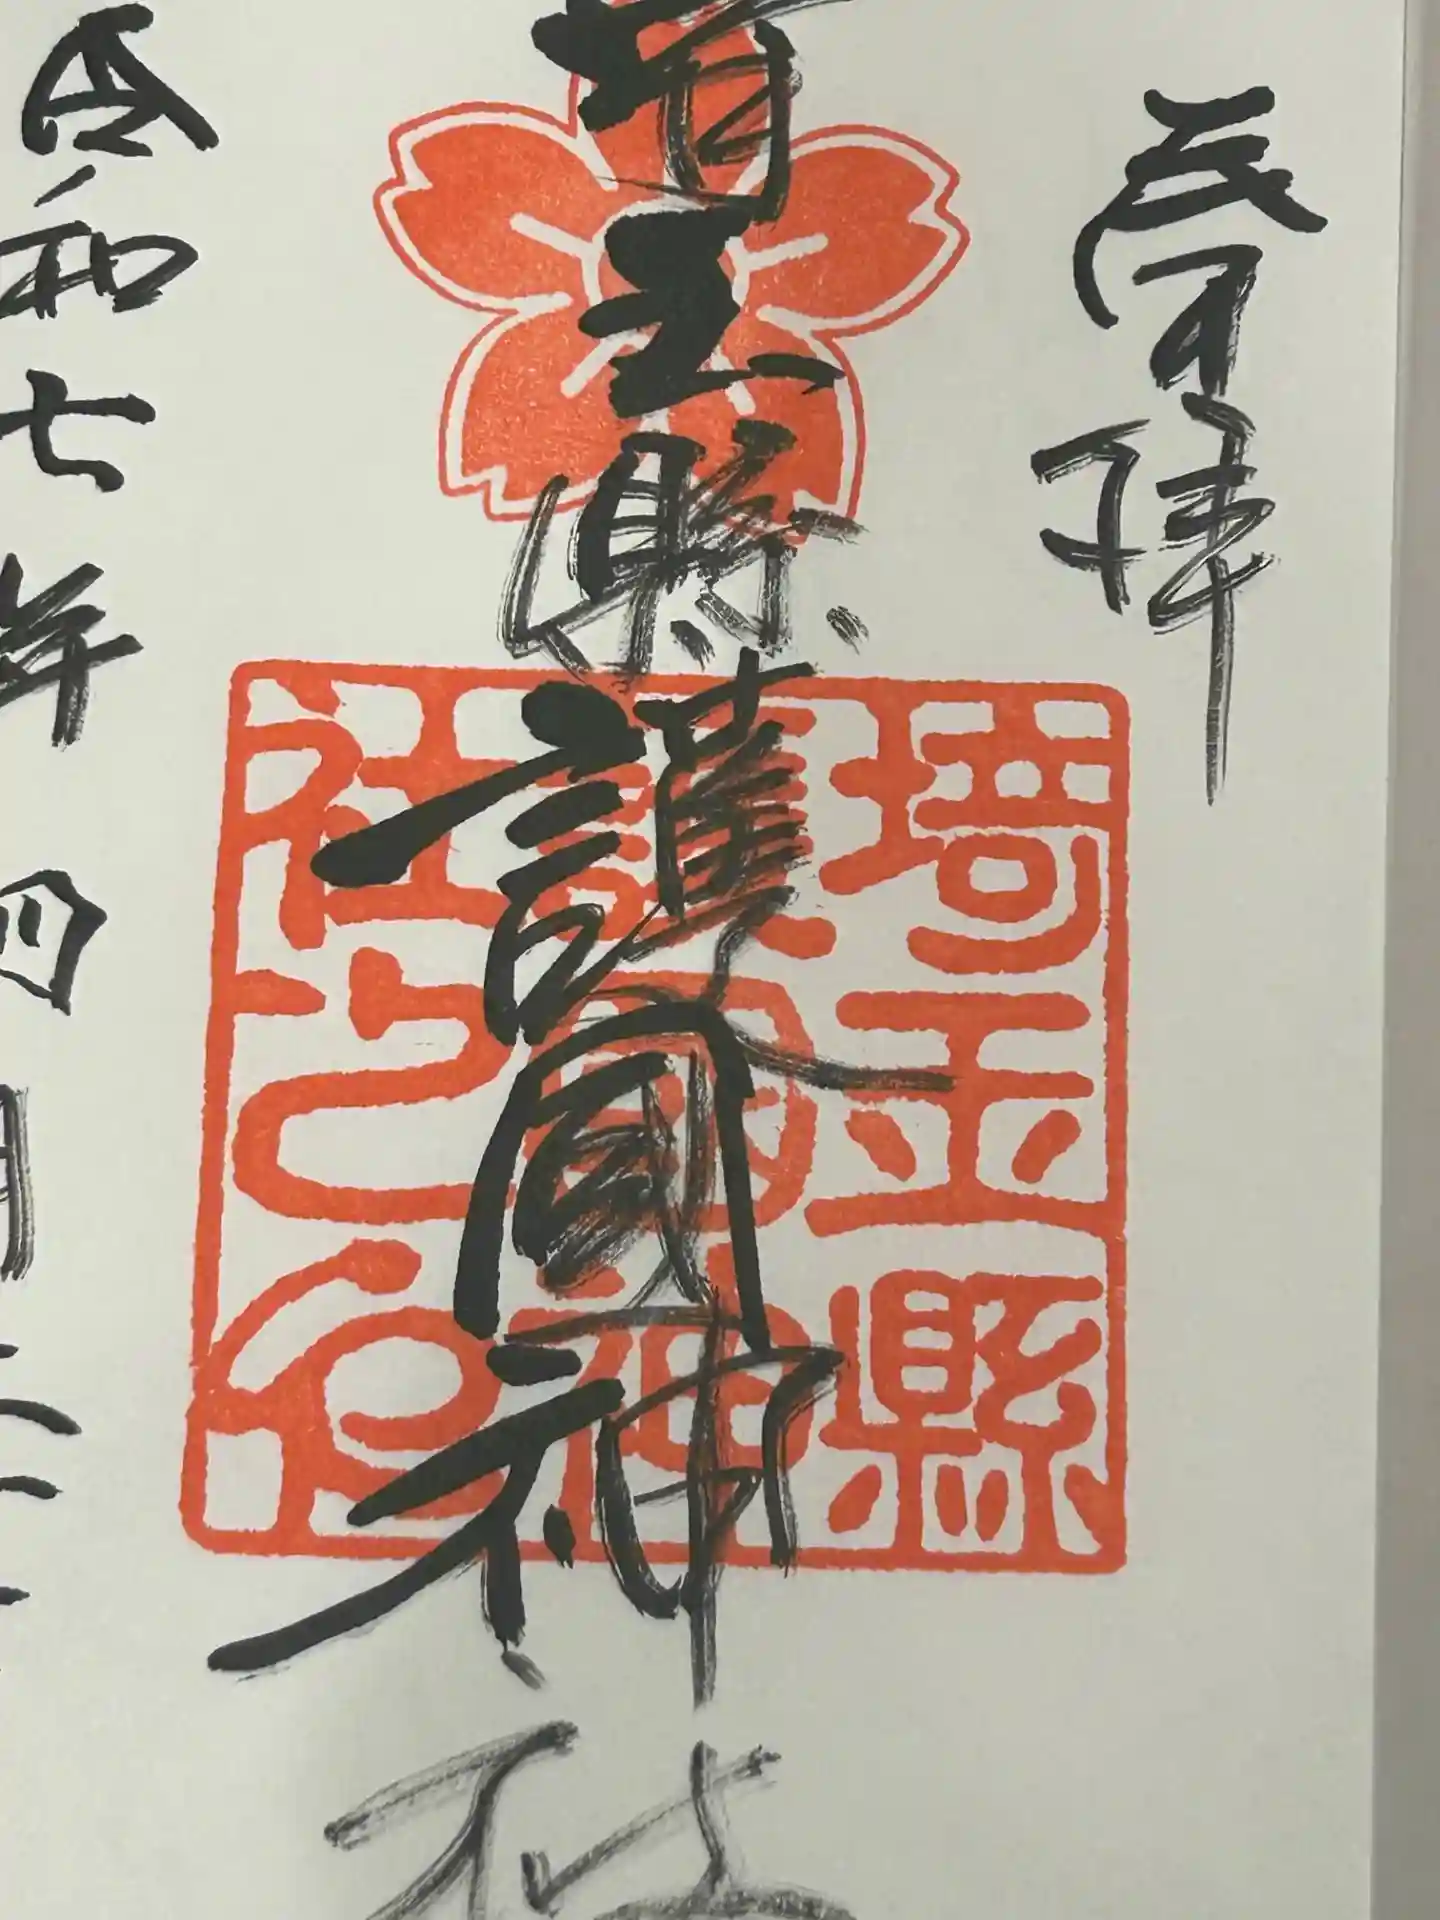 奉拝
埼玉縣護國神社
埼玉縣
護國神
社之印
令和七年四月